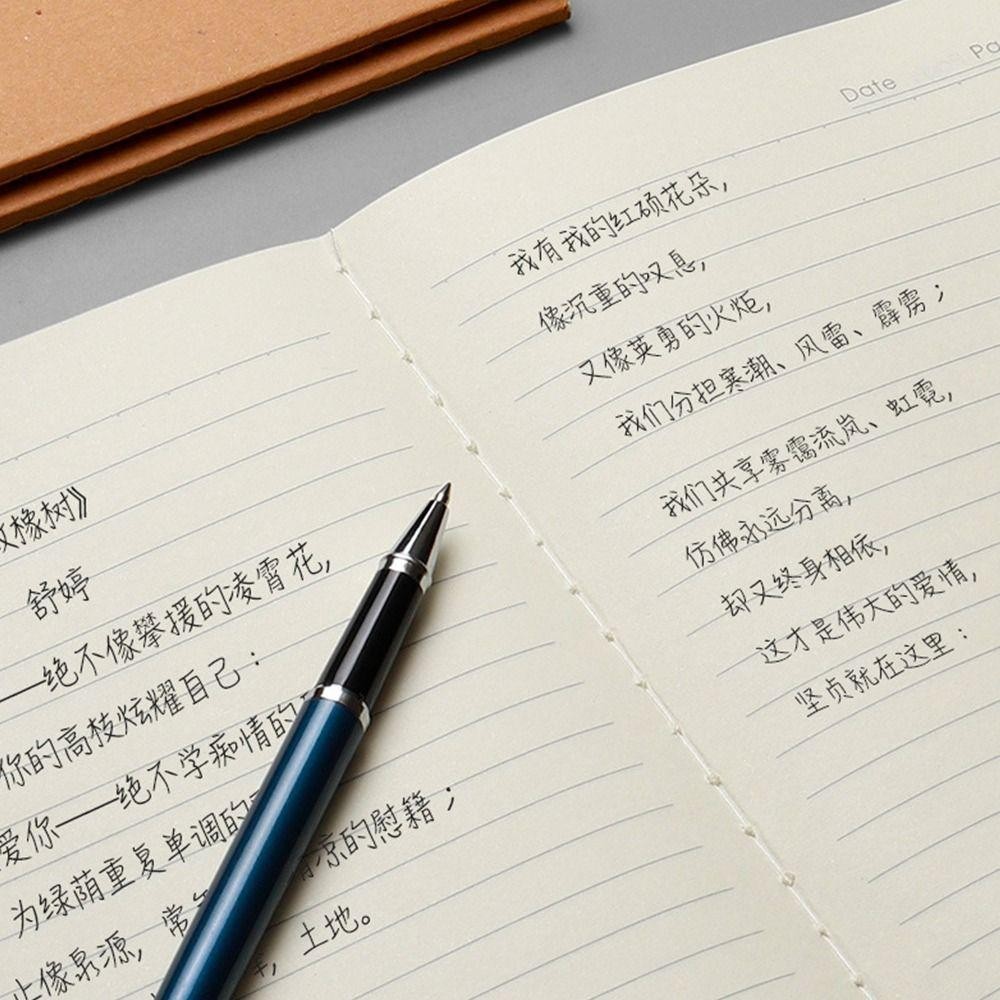 致橡树》
舒婷
——绝不像攀援的凌霄花，
你的高枝炫耀自己：
爱你——绝不学痴情的
为绿荫重复单调的
止像泉源，常 清凉的慰籍；
土地。
Date Pa
我有我的红硕花朵，
像沉重的叹息，
又像英勇的火炬，
我们分担寒潮、风雷、霹雳；
我们共享雾霭流岚、虹霓，
仿佛永远分离，
却又终身相依，
这才是伟大的爱情，
坚贞就在这里：